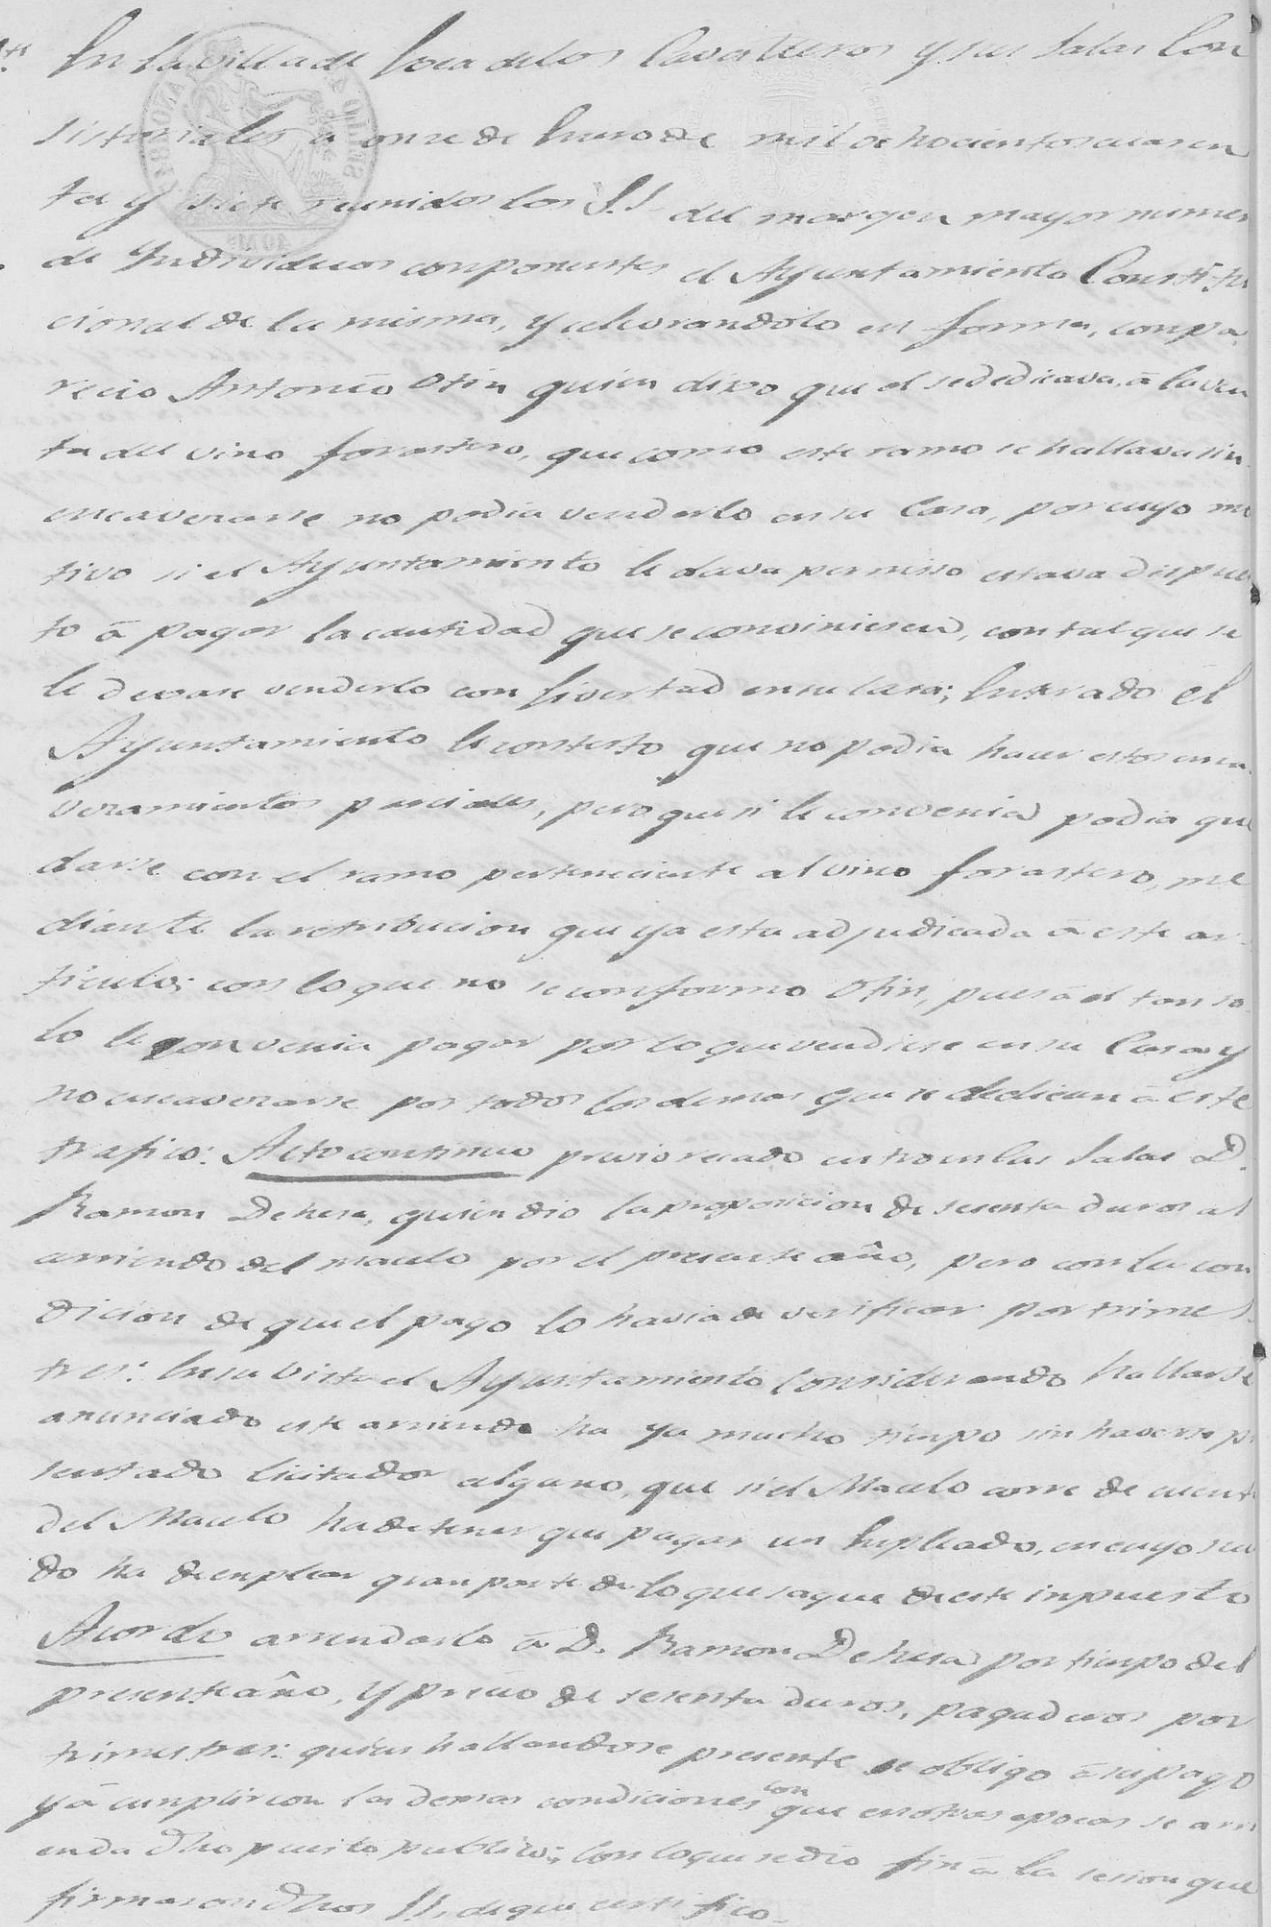 En la villa de Egea de los Cavalleros y sus Salas Con
sistoriales a onze de Enero de mil ochocientos cuaren
ta y siete reunidos los S.S. del margen mayor numer
de Yndividuos conponentes el Ayuntamiento Constitu
cional de la misma, y celevrandolo en forma, conpa
recio Antonio Otin quien dixo que el se dedicava á la ven
ta del vino forastero, que como este ramo se hallava sin
encavezarse no podia venderlo en su Casa, por cuyo mo
tivo si el Ayuntamiento le dava permiso estava dispues
to á pagar la cantidad que se conviniesen, con tal que se
le dexase venderlo con livertad en su casa; Enterado el
Ayuntamiento le contesto que no podia hacer estos enca
vezamientos parciales, pero que si le convenia podia que
darse con el ramo perteneciente al vino forastero, me
diante la retribucion que ya esta adjudicada á este ar
ticulo; con lo que no se conformo Otin, pues á el tan so
lo le convenia pagar por lo que vendiese en su Casa y
no encavezarse por todos los demas que se dedican á este
trafico: Acto continuo previo recado entro en las Salas D.
Ramon Dehesa, quien dio la proposicion de sesenta duros al
arriendo del macelo por el presente año, pero con la con
dicion de que el pago lo havia de verificar por trimes
tres: En su vista el Ayuntamiento Considerando hallarse
anunciado este arriendo ha ya mucho tiempo sin haverse pre
sentado licitador alguno, que si el Macelo corre de cuenta
del Macelo ha de tener que pagar un Enpleado, en cuyo suel
do ha de enplear gran parte de lo que saque de este inpuesto
Acordo arrendarlo á D. Ramon Dehesa por tiempo del
presente año, y precio de sesenta duros, pagaderos por
trimestres: quien hallandose presente se obligo á su pago
y á cunplir con las demas condiciones con que en otras epocas se arri
enda dho puesto publico; Con lo que se dio fin á la sesion que
firmaron dhos SS, de que certifico.